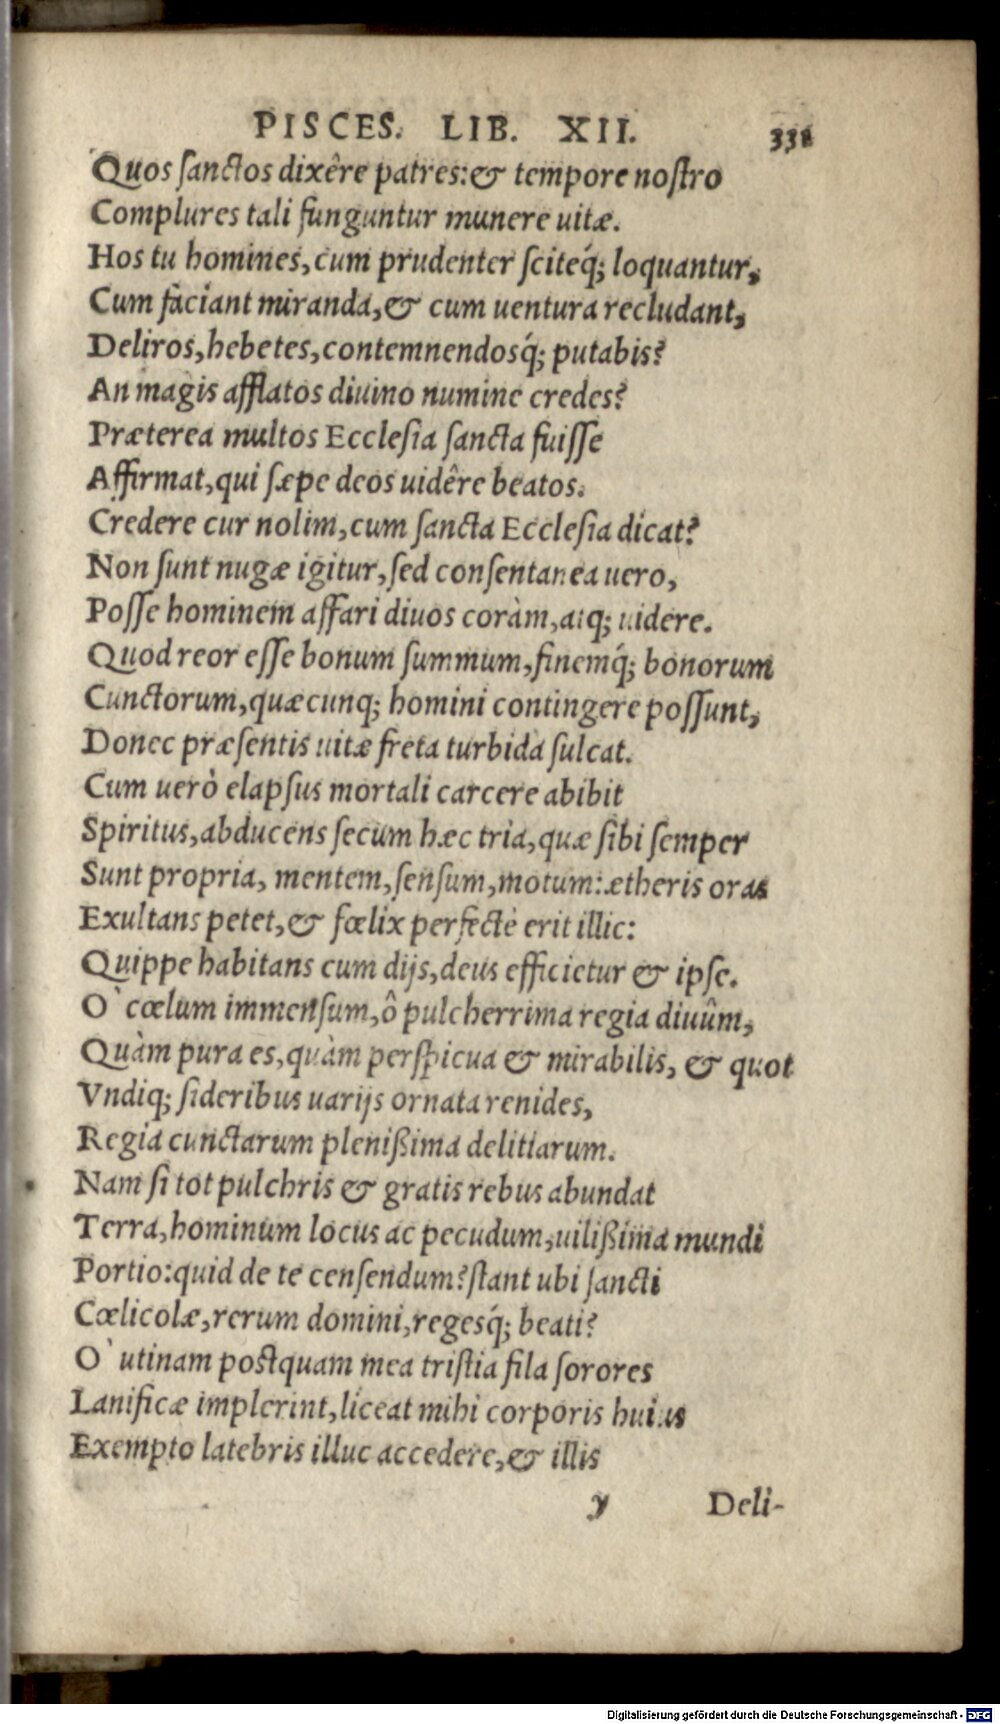 PISCES. LIB. XII. 338
Quos sanctos dixêre patres:& tempore nostro
Complures tali funguntur munere uitæ.
Hos tu homines, cum prudenter sciteq́; loquantur,
Cum faciant miranda,& cum uentura recludant,
Deliros, hebetes, contemnendosq́; putabis?
An magis afflatos diuino numine credes?
Præterea multos Ecclesia sancta fuisse
Affirmat, qui sæpe deos uidêre beatos.
Credere cur nolim, cum sancta Ecclesia dicat?
Non sunt nugæ igitur, sed consentanea uero,
Posse hominem affari diuos coràm, atq; uidere.
Quod reor esse bonum summum, finemq́; bonorum
Cunctorum, quæcunq; homini contingere possunt,
Donec præsentis uitæ freta turbida sulcat.
Cum uerò elapsus mortali carcere abibit
Spiritus, abducens secum hæc tria, quæ sibi semper
Sunt propria, mentem, sensum, motum: ætheris oras
Exultans petet,& fœlix perfectè erit illic:
Quippe habitans cum dijs, deus efficietur & ipse.
O` cœlum immensum, ô pulcherrima regia diuûm,
Quàm pura es, quàm perspicua & mirabilis, & quot
Vndiq; sideribus uarijs ornata renides,
Regia cunctarum plenißima delitiarum.
Nam si tot pulchris & gratis rebus abundat
Terra, hominum locus ac pecudum, uilißima mundi
Portio: quid de te censendum? stant ubi sancti
Cœlicolæ, rerum domini, regesq́; beati?
O` utinam postquam mea tristia fila sorores
Lanificæ implerint, liceat mihi corporis huius
Exempto latebris illuc accedere,& illis
y Deli-
Digitalisierung gefördert durch die Deutsche Forschungsgemeinschaft - DFG